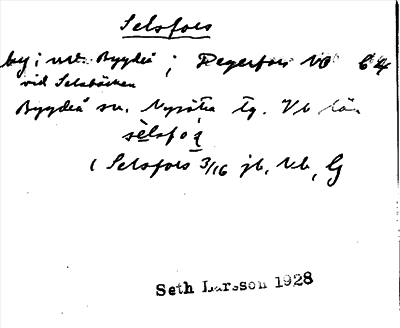 Selsfors
by i nv. Bygdeå ; Degerfors vb 64
vid Selsbäcken
Bygdeå sn. Nysätra tg. Vb län
sèlsfoṣ
( Selsfors 3/16 jb,
Seth Larsson 1928